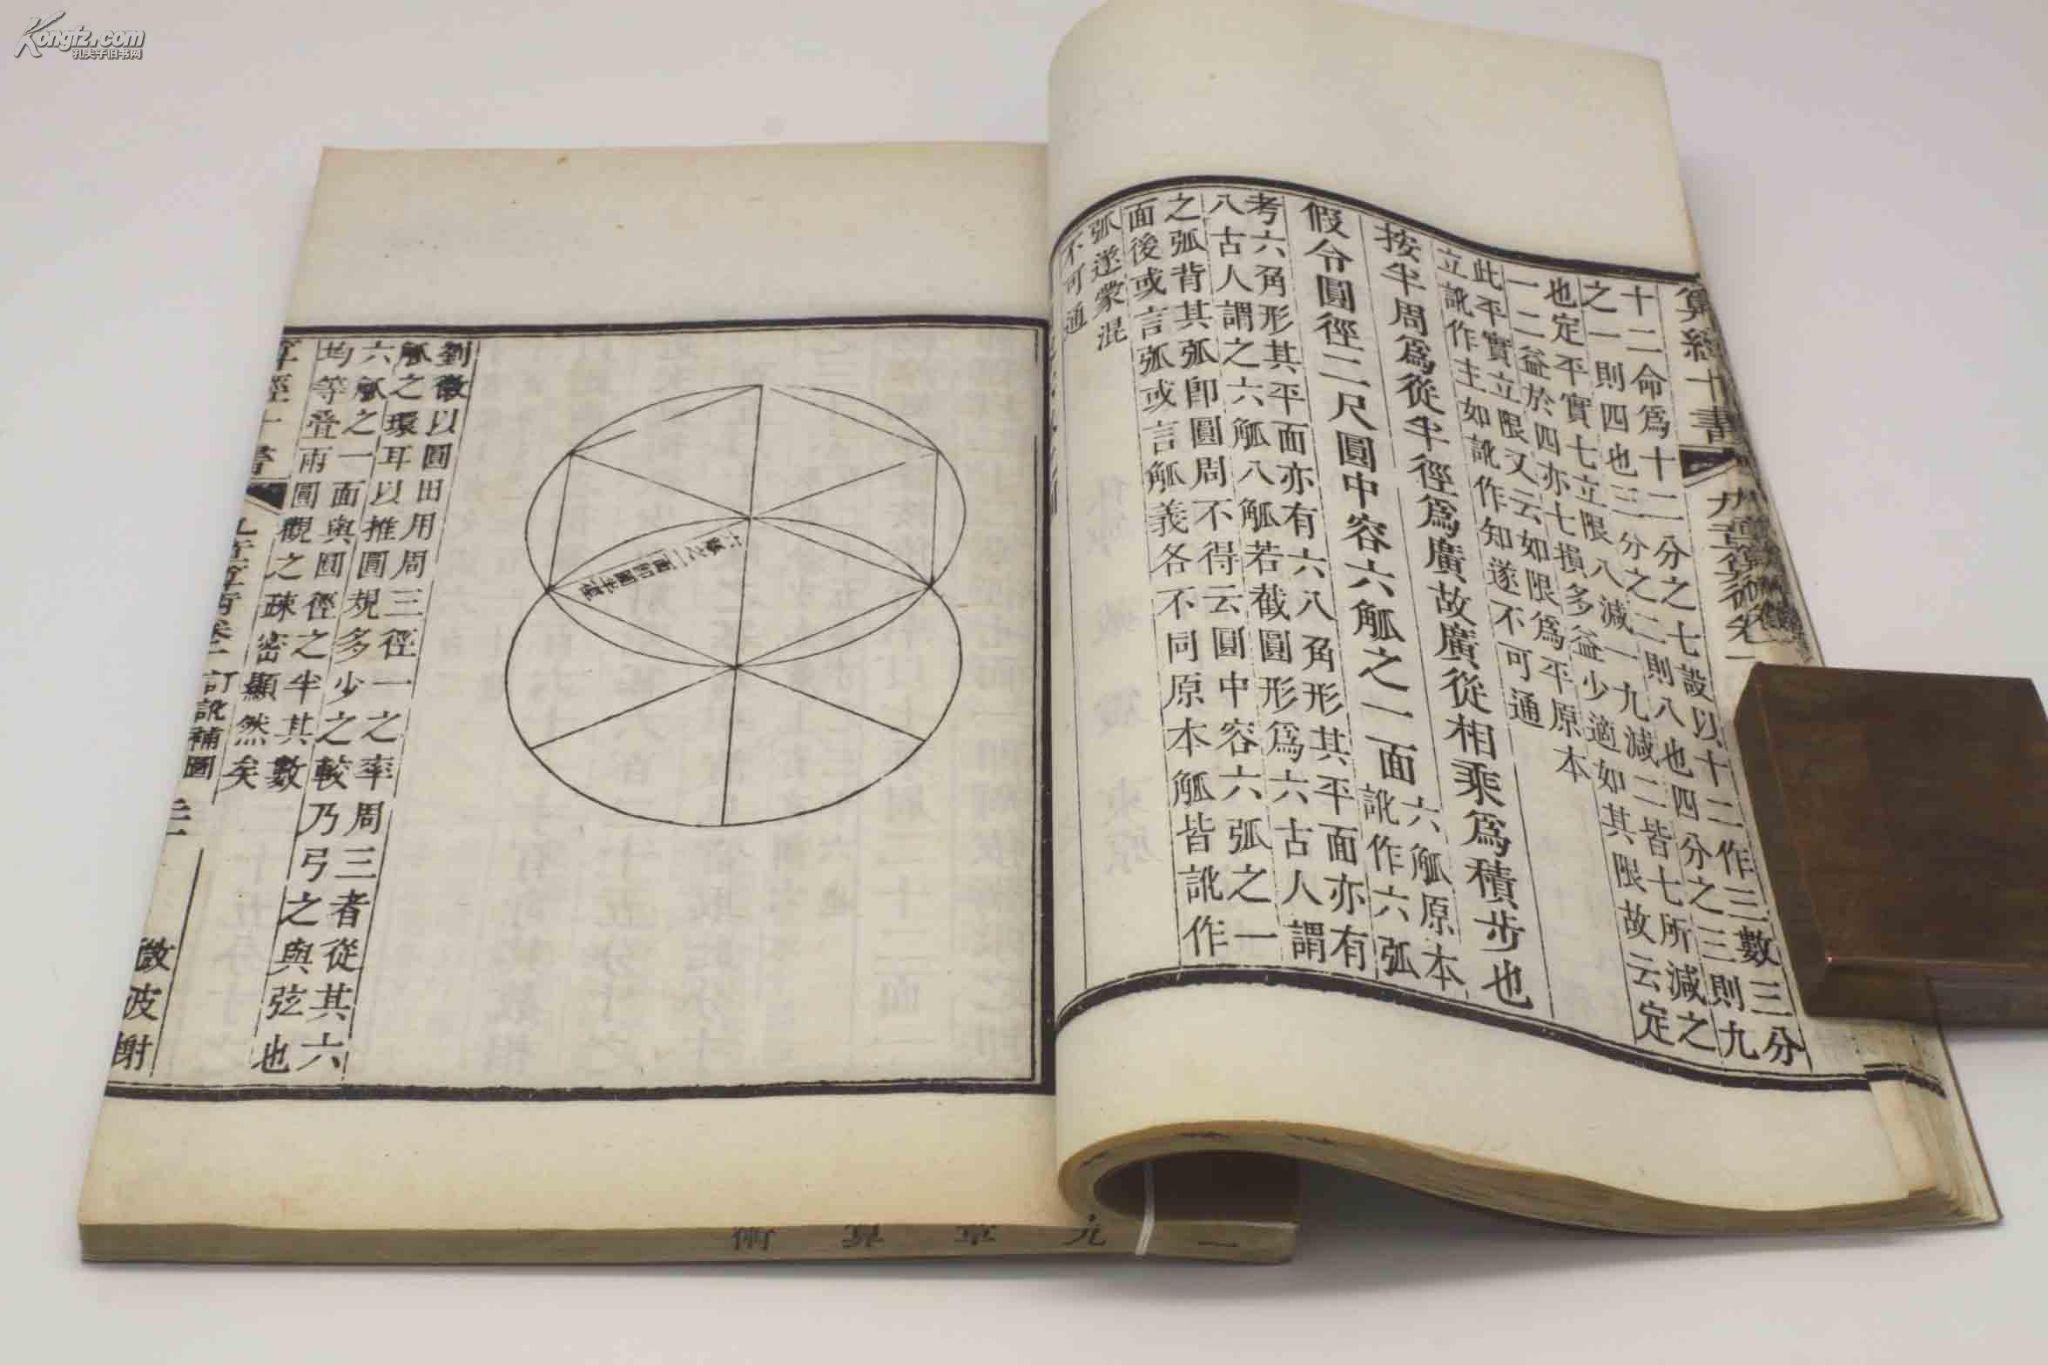 算經十書 九章算術卷一
十二命爲十二分之七設以十二作三數三分
之一則四也三分之二則八也四分之三則九
也定平實七立限八減一九減二皆七所減之
一二益於四亦七損多益少適如其限故云定
此平實立限又云如限爲平原本
立訛作主如訛作知遂不可通
按半周爲從半徑爲廣故廣從相乘爲積步也
假令圓徑二尺圓中容六觚之一面
六觚原本
訛作六弧
考六角形其平面亦有六八角形其平面亦有
八古人謂之六觚八觚若截圓形爲六古人謂
之弧背其弧卽圓周不得云圓中容六弧之一
面後或言弧或言觚義各不同原本觚皆訛作
弧遂蒙混
不可通
六觚之一面卽圓半徑
劉徽以圓田用周三徑一之率周三者從其六
觚之環耳以推圓規多少之較乃弓之與弦也
六觚之一面與圓徑之半其數
均等叠兩圓觀之疎密顯然矣
算經十書 九章算術卷一 訂訛補圖 微波榭
一 九章算術
Kongfz.com
孔夫子旧书网